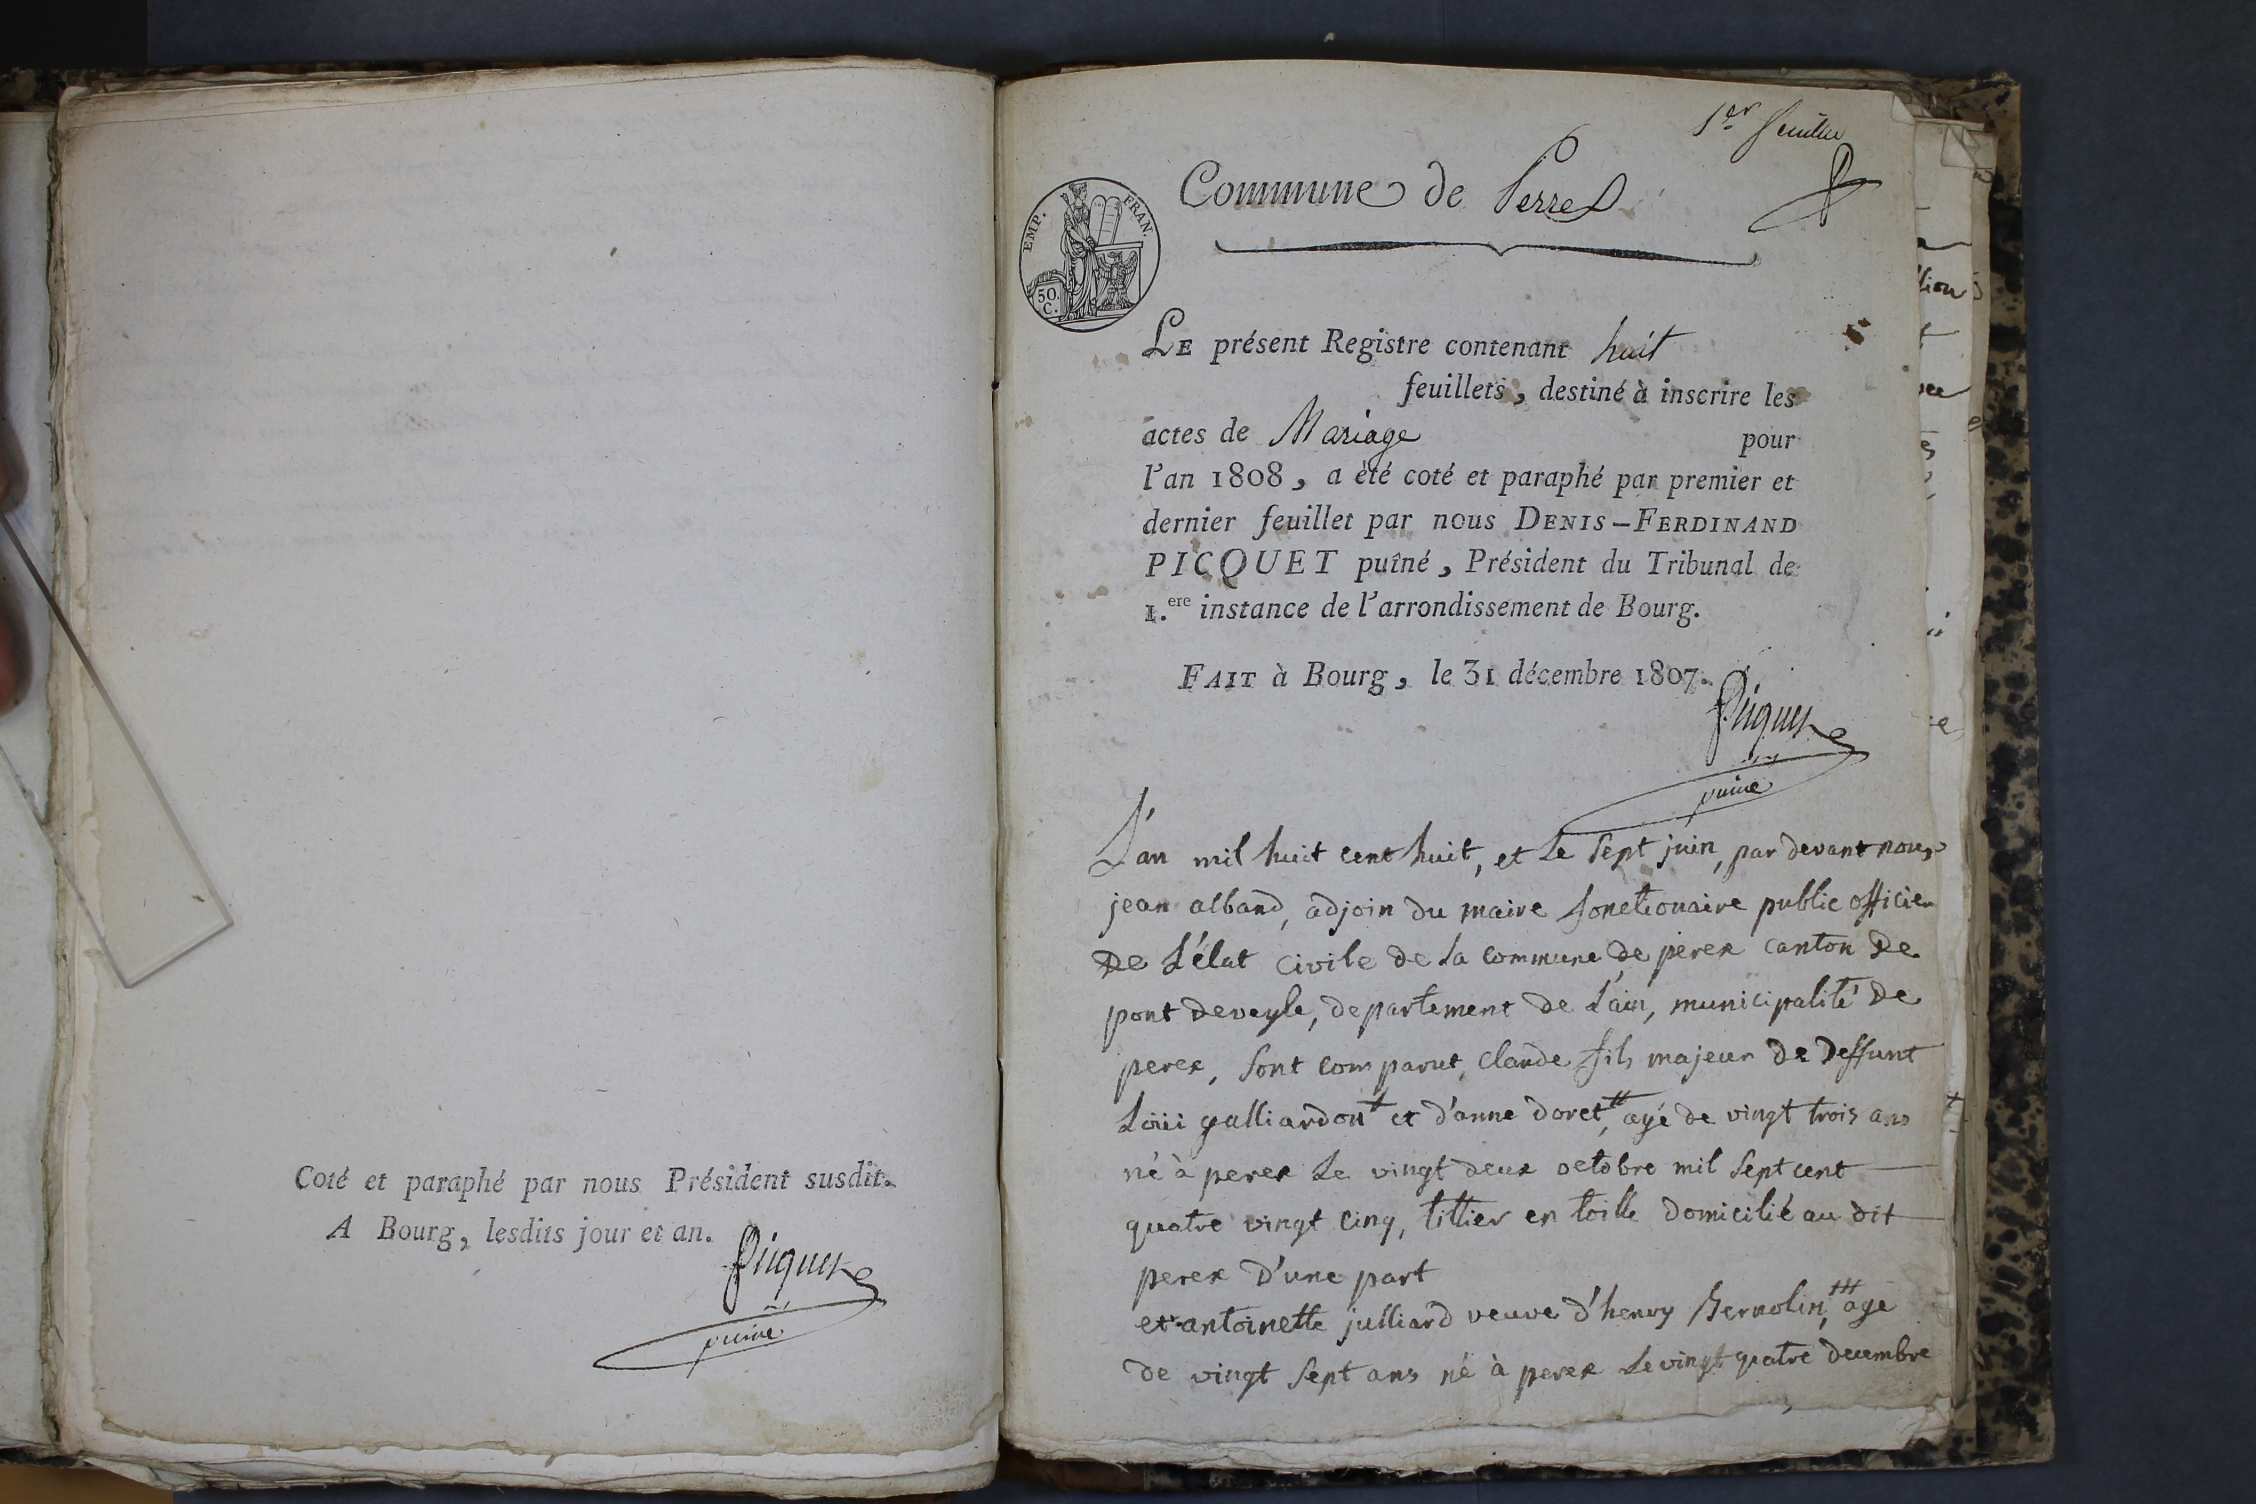 Coté et paraphé par nous Président susdit.
A Bourg, lesdits jour et an.
Picquet
puiné
1er feuillet
Commune de Perrex
EMP. FRAN.
50.
C.
LE présent Registre contenant huit
feuillets, destiné à inscrire les
actes de Mariage pour
l'an 1808, a été coté et paraphé par premier et
dernier feuillet par nous DENIS-FERDINAND
PICQUET puîné, Président du Tribunal de
1.ere instance de l'arrondissement de Bourg.
FAIT à Bourg, le 31 décembre 1807.
Picquet
puiné
L'an mil huit cent huit, et le sept juin, par devant nous
jean alband, adjoin du maire fonctionaire public officier
De L'état civile de la commune de perex canton de
pont deveyle, departement de L'ain, municipalité de
perex, sont comparut, claude fils majeur de deffunt
Loüi galliardon t et d'anne doret, tt agé de vingt trois ans
né à perex Le vingt deux octobre mil sept cent
quatre vingt cinq, tittier en toille domicilié au dit
perex D'une part
et antoinette julliard veuve d'henry Bernolin, ttt agé
de vingt sept ans né à perex Le vingt quatre decembre